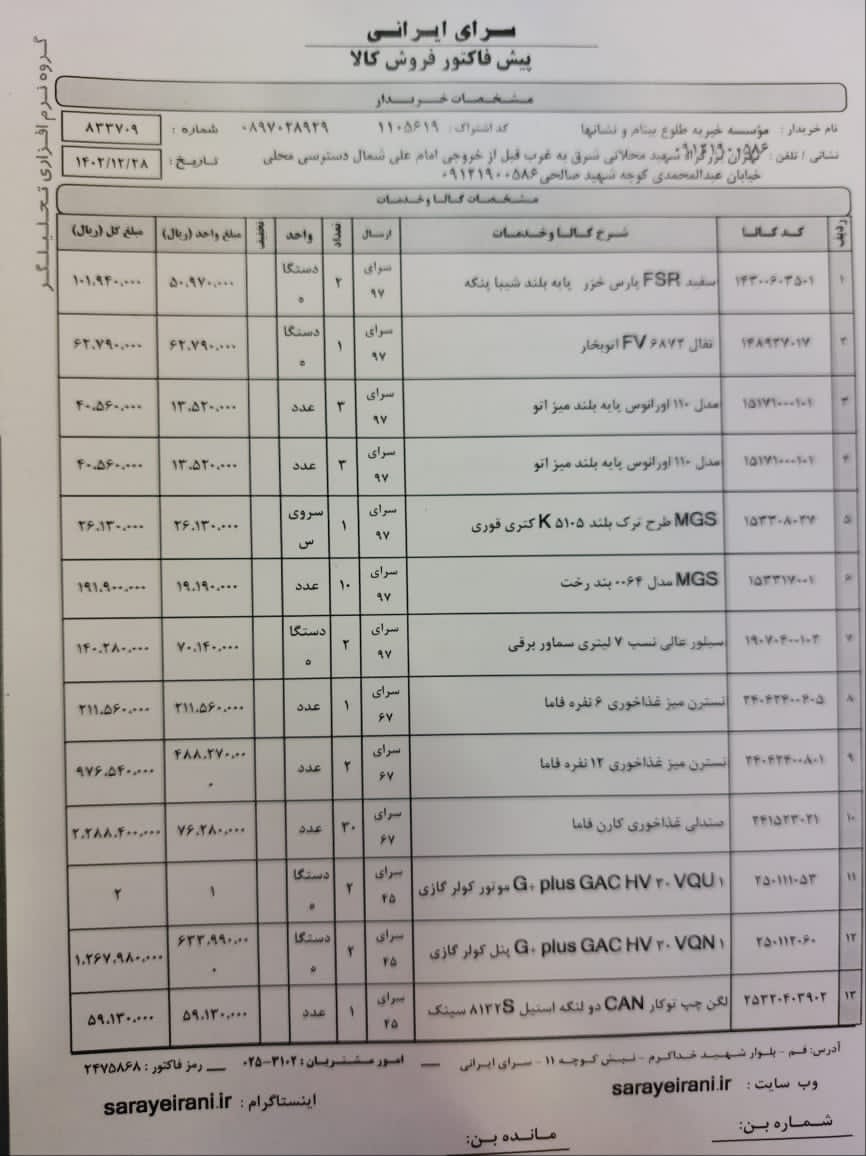 سرای ایرانی
پیش فاکتور فروش کالا
گروه نرم افزاری تحلیلگر
مشخصات خریدار
نام خریدار: موسسه خیریه طلوع بینام و نشانها کد اشتراک: ۱۱۰۵۶۱۹ ۰۸۹۷۰۲۸۹۲۹ شماره: ۸۳۳۷۰۹
نشانی / تلفن: شهید محلاتی شرق به غرب قبل از خروجی امام علی شمال دسترسی محلی تاریخ: ۱۴۰۲/۱۲/۲۸
خیابان عبدالمحمدی کوچه شهید صالحی ۰۹۱۲۱۹۰۰۵۸۶
مشخصات کالا و خدمات
ردیف کد کالا شرح کالا و خدمات ارسال تعداد واحد تخفیف مبلغ واحد (ریال) مبلغ کل (ریال)
۱ سفید FSR پارس خزر پایه بلند شیبا پنکه سرای ۹۷ ۲ دستگاه ۵۰.۹۷۰.۰۰۰ ۱۰۱.۹۴۰.۰۰۰
۲ ۱۴۸۹۳۷۰۱۷ تفال FV ۶۸۷۲ اتوبخار سرای ۹۷ ۱ دستگاه ۶۲.۷۹۰.۰۰۰ ۶۲.۷۹۰.۰۰۰
۳ مدل ۱۱۰ اورانوس پایه بلند میز اتو سرای ۹۷ ۳ عدد ۱۳.۵۲۰.۰۰۰ ۴۰.۵۶۰.۰۰۰
۴ مدل ۱۱۰ اورانوس پایه بلند میز اتو سرای ۹۷ ۳ عدد ۱۳.۵۲۰.۰۰۰ ۴۰.۵۶۰.۰۰۰
۵ MGS طرح ترک بلند K ۵۱۰۵ کتری قوری سرای ۹۷ ۱ سرویس ۲۶.۱۳۰.۰۰۰ ۲۶.۱۳۰.۰۰۰
۶ ۱۵۳۳۱۷۰۰۱ MGS مدل ۰۰۶۴ بند رخت سرای ۹۷ ۱۰ عدد ۱۹.۱۹۰.۰۰۰ ۱۹۱.۹۰۰.۰۰۰
۷ سیلور عالی نسب ۷ لیتری سماور برقی سرای ۹۷ ۲ دستگاه ۷۰.۱۴۰.۰۰۰ ۱۴۰.۲۸۰.۰۰۰
۸ نسترن میز غذاخوری ۶ نفره فاما سرای ۶۷ ۱ عدد ۲۱۱.۵۶۰.۰۰۰ ۲۱۱.۵۶۰.۰۰۰
۹ نسترن میز غذاخوری ۱۲ نفره فاما سرای ۶۷ ۲ عدد ۴۸۸.۲۷۰.۰۰۰ ۹۷۶.۵۴۰.۰۰۰
۱۰ ۲۴۱۵۲۳۰۲۱ صندلی غذاخوری کارن فاما سرای ۶۷ ۳۰ عدد ۷۶.۲۸۰.۰۰۰ ۲.۲۸۸.۴۰۰.۰۰۰
۱۱ ۲۵۰۱۱۱۰۵۳ G+ plus GAC HV ۳۰ VQU ۱ موتور کولر گازی سرای ۴۵ ۲ دستگاه ۱ ۲
۱۲ ۲۵۰۱۱۲۰۶۰ G+ plus GAC HV ۳۰ VQN ۱ پنل کولر گازی سرای ۴۵ ۲ دستگاه ۶۳۳.۹۹۰.۰۰۰ ۱.۲۶۷.۹۸۰.۰۰۰
۱۳ ۲۵۳۲۰۴۰۳۹۰۲ لگن چپ توکار CAN دو لنگه استیل ۸۱۳۲S سینک سرای ۴۵ ۱ عدد ۵۹.۱۳۰.۰۰۰ ۵۹.۱۳۰.۰۰۰
آدرس: قم - بلوار شهید خداکرم - نبش کوچه ۱۱ - سرای ایرانی — امور مشتریان: ۳۱۰۲-۰۲۵ — رمز فاکتور: ۲۴۷۵۸۶۸
وب سایت: sarayeirani.ir اینستاگرام: sarayeirani.ir
شماره بن: مانده بن: